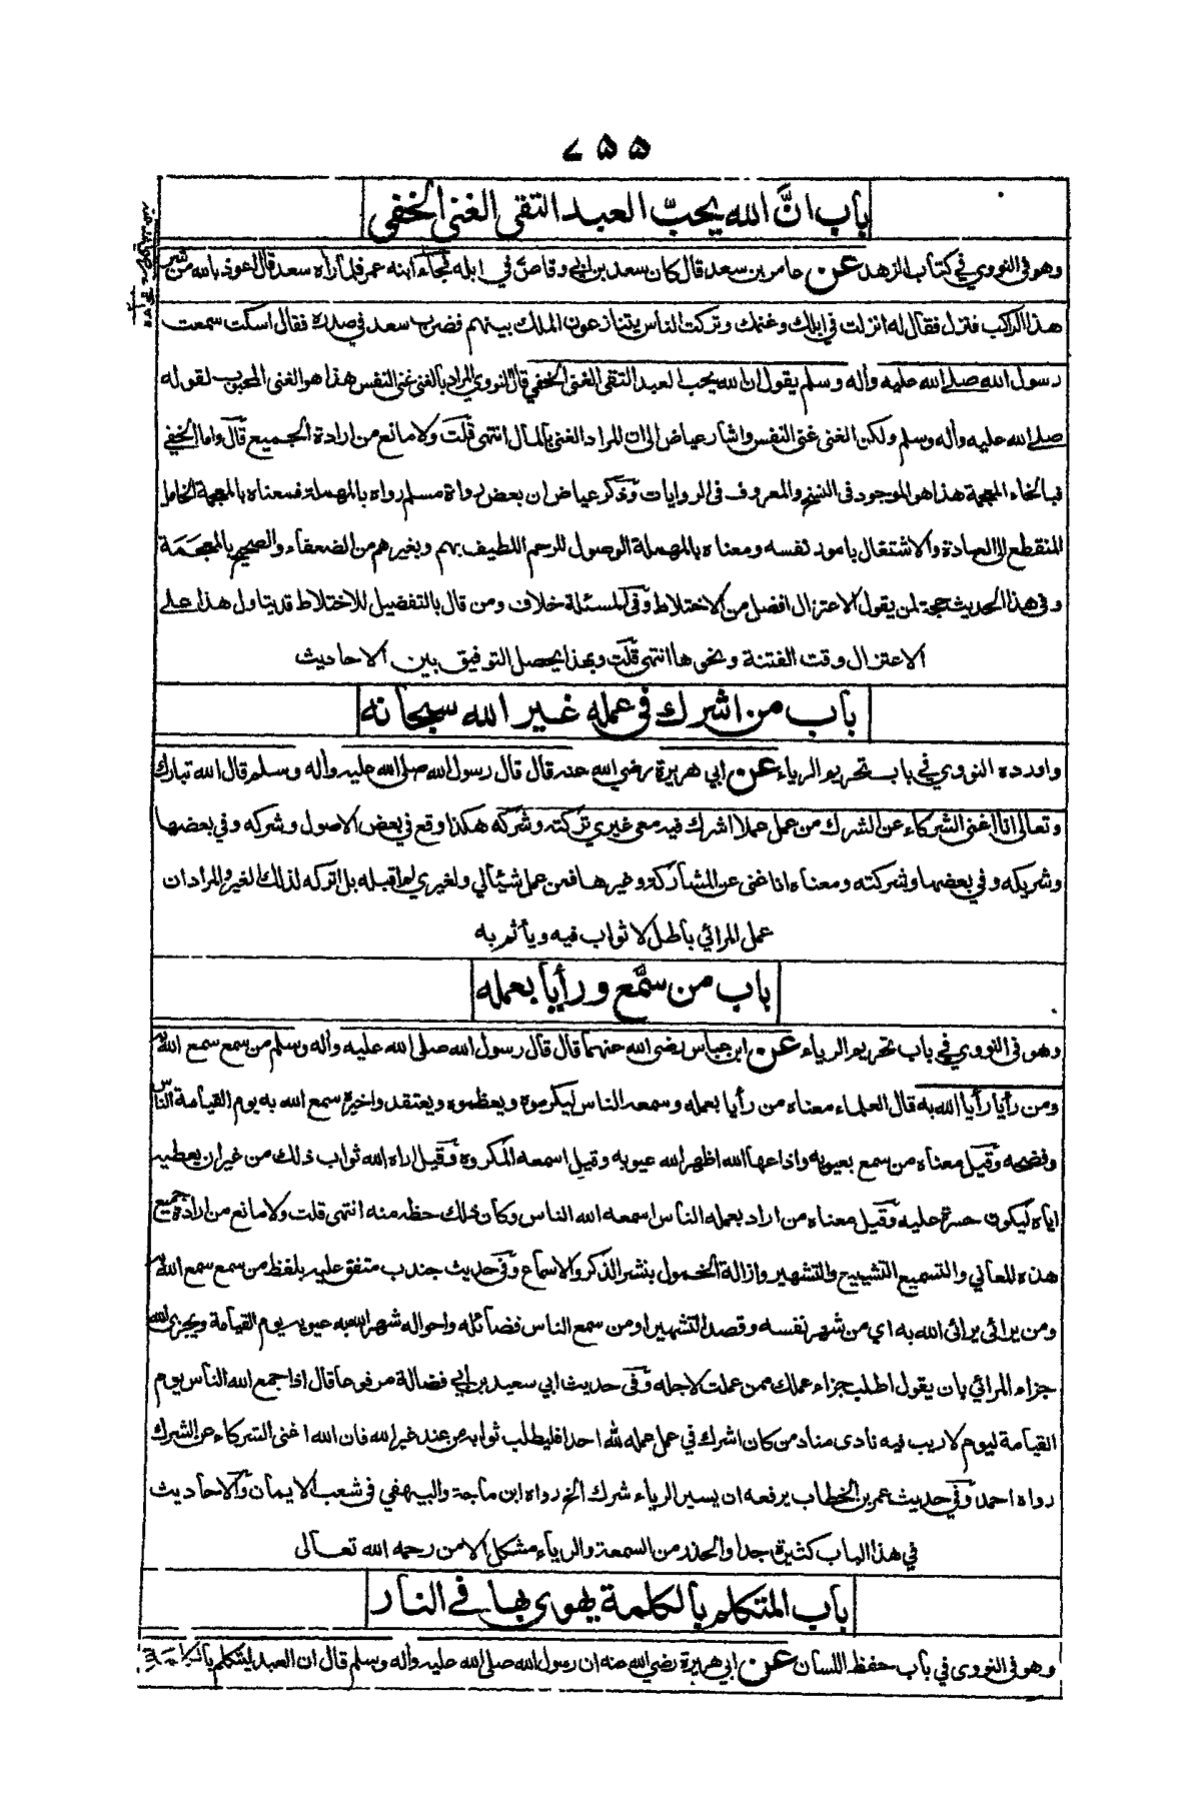 ٧٥٥
باب انَّ الله يحبّ العبد التقي الغني الخفي
وهو في النووي في كتاب الزهد عن عامر بن سعد قال كان سعد بن ابي وقاص في ابله فجاءه ابنه عمر فلما رأه سعد قال اعوذ بالله من شر
هذا الراكب فنزل فقال له انزلت في ابلك وغنمك وتركت الناس يتنازعون الملك بينهم فضرب سعد في صدره فقال اسكت سمعت
رسول الله صلے الله عليه وأله وسلم يقول ان الله يحب العبد التقي الغني الخفي قال النووي المراد بالغني غني النفس هذا هو الغني المحبوب لقوله
صلے الله عليه وأله وسلم ولكن الغنى غنى النفس واشار عياض الى ان المراد الغني بالمال انتهى قلت ولا مانع من ارادة الجميع قال واما الخفي
فبالخاء المعجمة هذا هو الموجود في النسخ والمعروف في الروايات وذكر عياض ان بعض رواة مسلم رواه بالمهملة فمعناه بالمعجمة الخامل
المنقطع الى العبادة والاشتغال بامور نفسه ومعناه بالمهملة الوصول للرحم اللطيف بهم وبغيرهم من الضعفاء والصحيح بالمعجمة
وفي هذا الحديث حجة لمن يقول الاعتزال افضل من الاختلاط وفي المسئلة خلاف ومن قال بالتفضيل للاختلاط قد يتاول هذا على
الاعتزال وقت الفتنة ونحوها انتهى قلت وبهذا يحصل التوفيق بين الاحاديث
باب من اشرك في عمله غير الله سبحانه
واورده النووي في باب تحريم الرياء عن ابي هريرة رضي الله عنه قال قال رسول الله صلى الله عليه وأله وسلم قال الله تبارك
وتعالى انا اغنى الشركاء عن الشرك من عمل عملا اشرك فيه معي غيري تركته وشركه هكذا وقع في بعض الاصول وشركه وفي بعضها
وشريكه وفي بعضها وشركته ومعناه انا غني عن المشاركة وغيرها فمن عمل شيئا لي ولغيري لم اقبله بل اتركه لذلك الغير والمراد ان
عمل المرائي باطل لا ثواب فيه ويأثم به
باب من سمَّع ورأيا بعمله
وهو في النووي في باب تحريم الرياء عن ابن عباس رضي الله عنهما قال قال رسول الله صلى الله عليه وأله وسلم من سمع سمع الله به
ومن رأيا رأيا الله به قال العلماء معناه من رأيا بعمله وسمعه الناس ليكرموه ويعظموه ويعتقدوا خيره سمع الله به يوم القيامة الناس
وفضحه وقيل معناه من سمع بعيوبه واذاعها الله اظهر الله عيوبه وقيل اسمعه المكروه وقيل اراه الله ثواب ذلك من غير ان يعطيه
اياه ليكون حسرة عليه وقيل معناه من اراد بعمله الناس اسمعه الله الناس وكان ذلك حظه منه انتهى قلت ولا مانع من ارادة جميع
هذه المعاني والتسميع التشييع والتشهير وازالة الخمول بنشر الذكر والاسماع وفي حديث جندب متفق عليه بلفظ من سمع سمع الله به
ومن يرائي يرائي الله به اي من شهر نفسه وقصد التشهير او من سمع الناس فضائله واحواله شهر الله به عيوبه يوم القيامة ويجزي الله
جزاء المرائي بان يقول اطلب جزاء عملك ممن عملت لاجله وفي حديث ابي سعيد بن ابي فضالة مرفوعا قال اذا جمع الله الناس يوم
القيامة ليوم لا ريب فيه نادى مناد من كان اشرك في عمل عمله لله احدا فليطلب ثوابه من عند غير الله فان الله اغنى الشركاء عن الشرك
رواه احمد وفي حديث عمر بن الخطاب يرفعه ان يسير الرياء شرك الخ رواه ابن ماجة والبيهقي في شعب الايمان والاحاديث
في هذا الباب كثيرة جدا والحذر من السمعة والرياء مشكل الا من رحمه الله تعالى
باب المتكلم بالكلمة يهوي بها في النار
وهو في النووي في باب حفظ اللسان عن ابي هريرة رضي الله عنه ان رسول الله صلى الله عليه وأله وسلم قال ان العبد ليتكلم بالكلمة